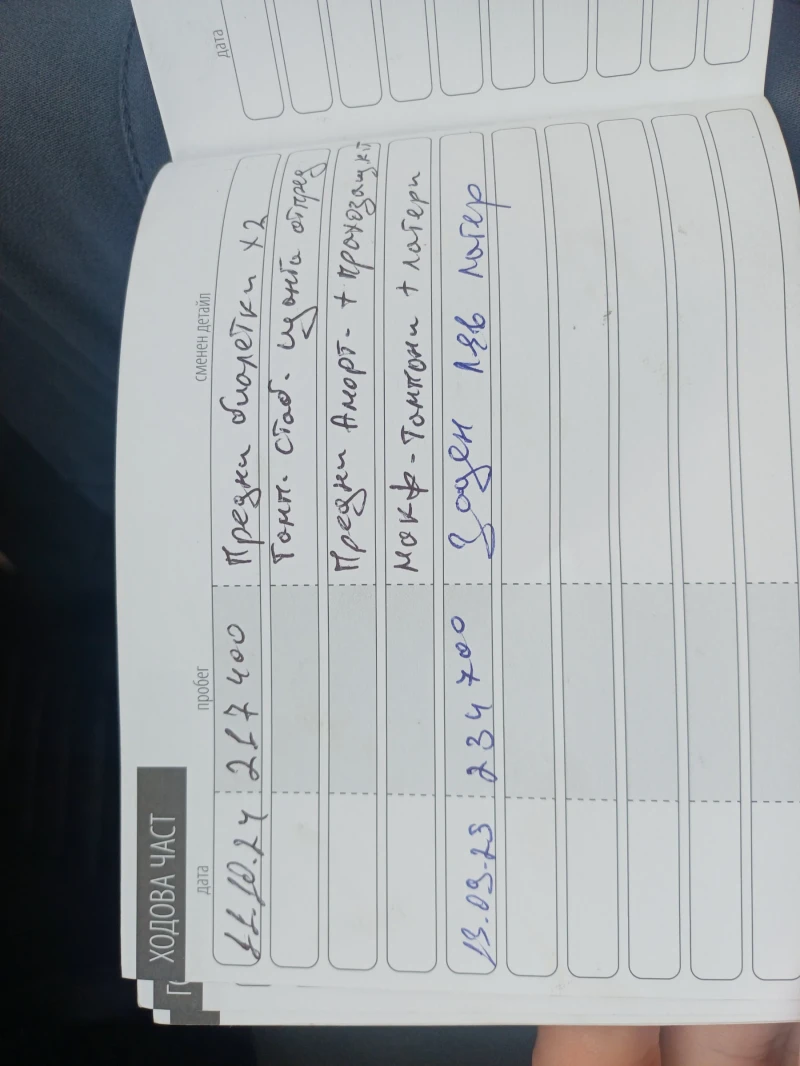 дата
ХОДОВА ЧАСТ
дата пробег сменен детайл
11.10.24 217 400 Предни биалетки х2
Тамп. стаб. щанга отпред
Предни Аморт. + прахозащит
Макф. Тампони + лагери
13.09.25 234 700 Заден ляв лагер